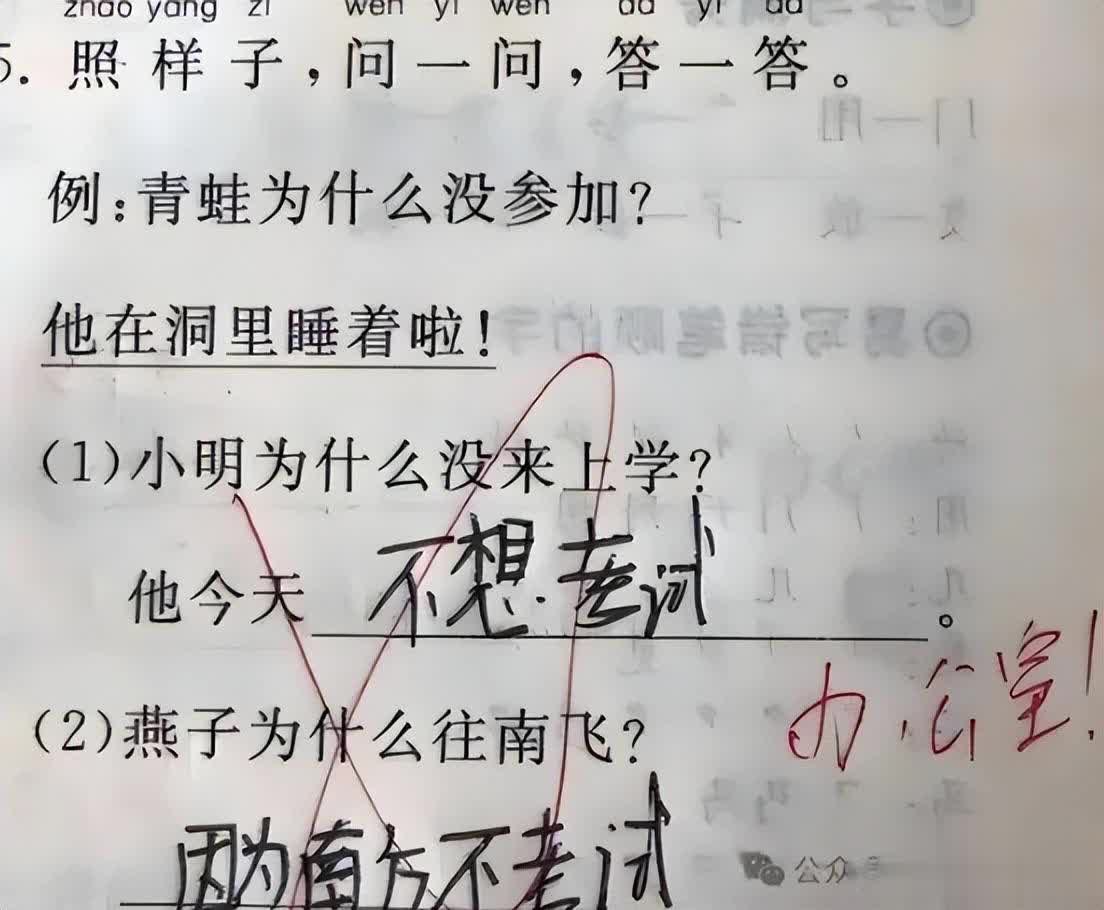 zhào yàng zi wèn yi wèn dá yi dá
5. 照样子，问一问，答一答。
例：青蛙为什么没参加？
他在洞里睡着啦！
（1）小明为什么没来上学？
他今天不想考试。
办公室！
（2）燕子为什么往南飞？
因为南方不考试
公众